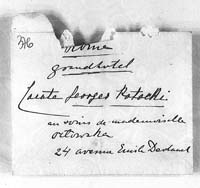 Rome
grand hotel
Comte Georges Potocki
au soins de mademoiselle
24 avenue Emile Deschanel